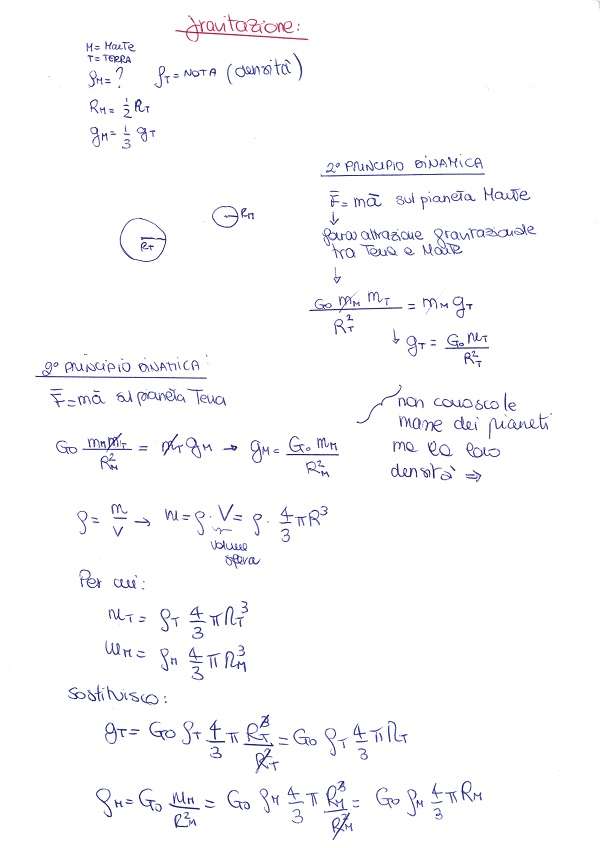 gravitazione:
M = Marte
T = TERRA
ρM = ? ρT = NOTA (densità)
RM = 1/2 RT
gM = 1/3 gT
2° PRINCIPIO DINAMICA
F̄ = mā sul pianeta Marte
↓
forza attrazione gravitazionale
tra Terra e Marte
↓
G0 mM mT / RT² = mM gT
↓ gT = G0 mT / RT²
RT
RM
2° PRINCIPIO DINAMICA
F̄ = mā sul pianeta Terra
G0 mM mT / RM² = mT gM → gM = G0 mM / RM²
non conosco le
masse dei pianeti
ma la loro
densità ⇒
ρ = m/V → m = ρ · V = ρ · 4/3 π R³
volume
sfera
Per cui:
mT = ρT 4/3 π RT³
mM = ρM 4/3 π RM³
sostituisco:
gT = G0 ρT 4/3 π RT³/RT² = G0 ρT 4/3 π RT
gM = G0 mM/R²M = G0 ρM 4/3 π RM³/RM² = G0 ρM 4/3 π RM